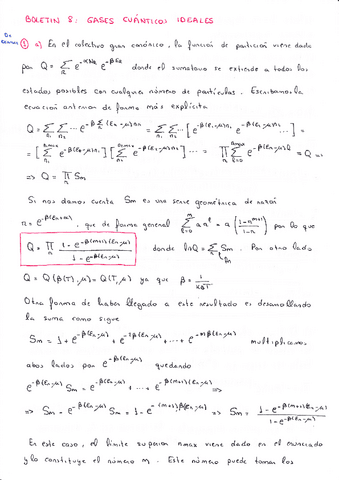 BOLETIN 8: GASES CUÁNTICOS IDEALES
De examen
① a) En el colectivo gran canónico, la función de partición viene dada
por Q = Σ_R e^{-αN_R} e^{-βE_R} donde el sumatorio se extiende a todos los
estados posibles con cualquier número de partículas. Escribamos la
ecuación anterior de forma más explícita
Q = Σ_{n₁} Σ_{n₂} ... e^{-β Σ(ε_r-μ)n_r} = Σ_{n₁} Σ_{n₂} ... [e^{-β(ε₁-μ)n₁} e^{-β(ε₂-μ)n₂} ...] =
= [Σ_{n₁} e^{-β(ε₁-μ)n₁}] [Σ_{n₂} e^{-β(ε₂-μ)n₂}] ... = Π Σ_{l=0} e^{-β(ε_r-μ)l} = Q ⇒
⇒ Q = Π S_m
Si nos damos cuenta S_m es una serie geométrica de razón
r = e^{-β(ε_r-μ)}, que de forma general Σ_{l=0}^{M} a r^l = a (1-r^{m+1} / 1-r) por lo que
Q = Π (1 - e^{-β(m+1)(ε_r-μ)} / 1 - e^{-β(ε_r-μ)}) donde lnQ = Σ S_m. Por otro lado
ln
Q = Q(β(T), μ) = Q(T, μ) ya que β = 1/K_BT
Otra forma de haber llegado a este resultado es desarrollando
la suma como sigue
S_m = 1 + e^{-β(ε_r-μ)} + e^{-2β(ε_r-μ)} + ... + e^{-mβ(ε_r-μ)} multiplicamos
ambos lados por e^{-β(ε_r-μ)} quedando
e^{-β(ε_r-μ)} S_m = e^{-β(ε_r-μ)} + ... + e^{-β(m+1)(ε_r-μ)} ⇒
⇒ S_m - e^{-β(ε_r-μ)} S_m = 1 - e^{-(m+1)β(ε_r-μ)} ⇒ S_m = (1 - e^{-β(m+1)(ε_r-μ)} / 1 - e^{-β(ε_r-μ)})
En este caso, el límite superior nmax viene dado en el enunciado
y lo constituye el número m. Este número puede tomar los